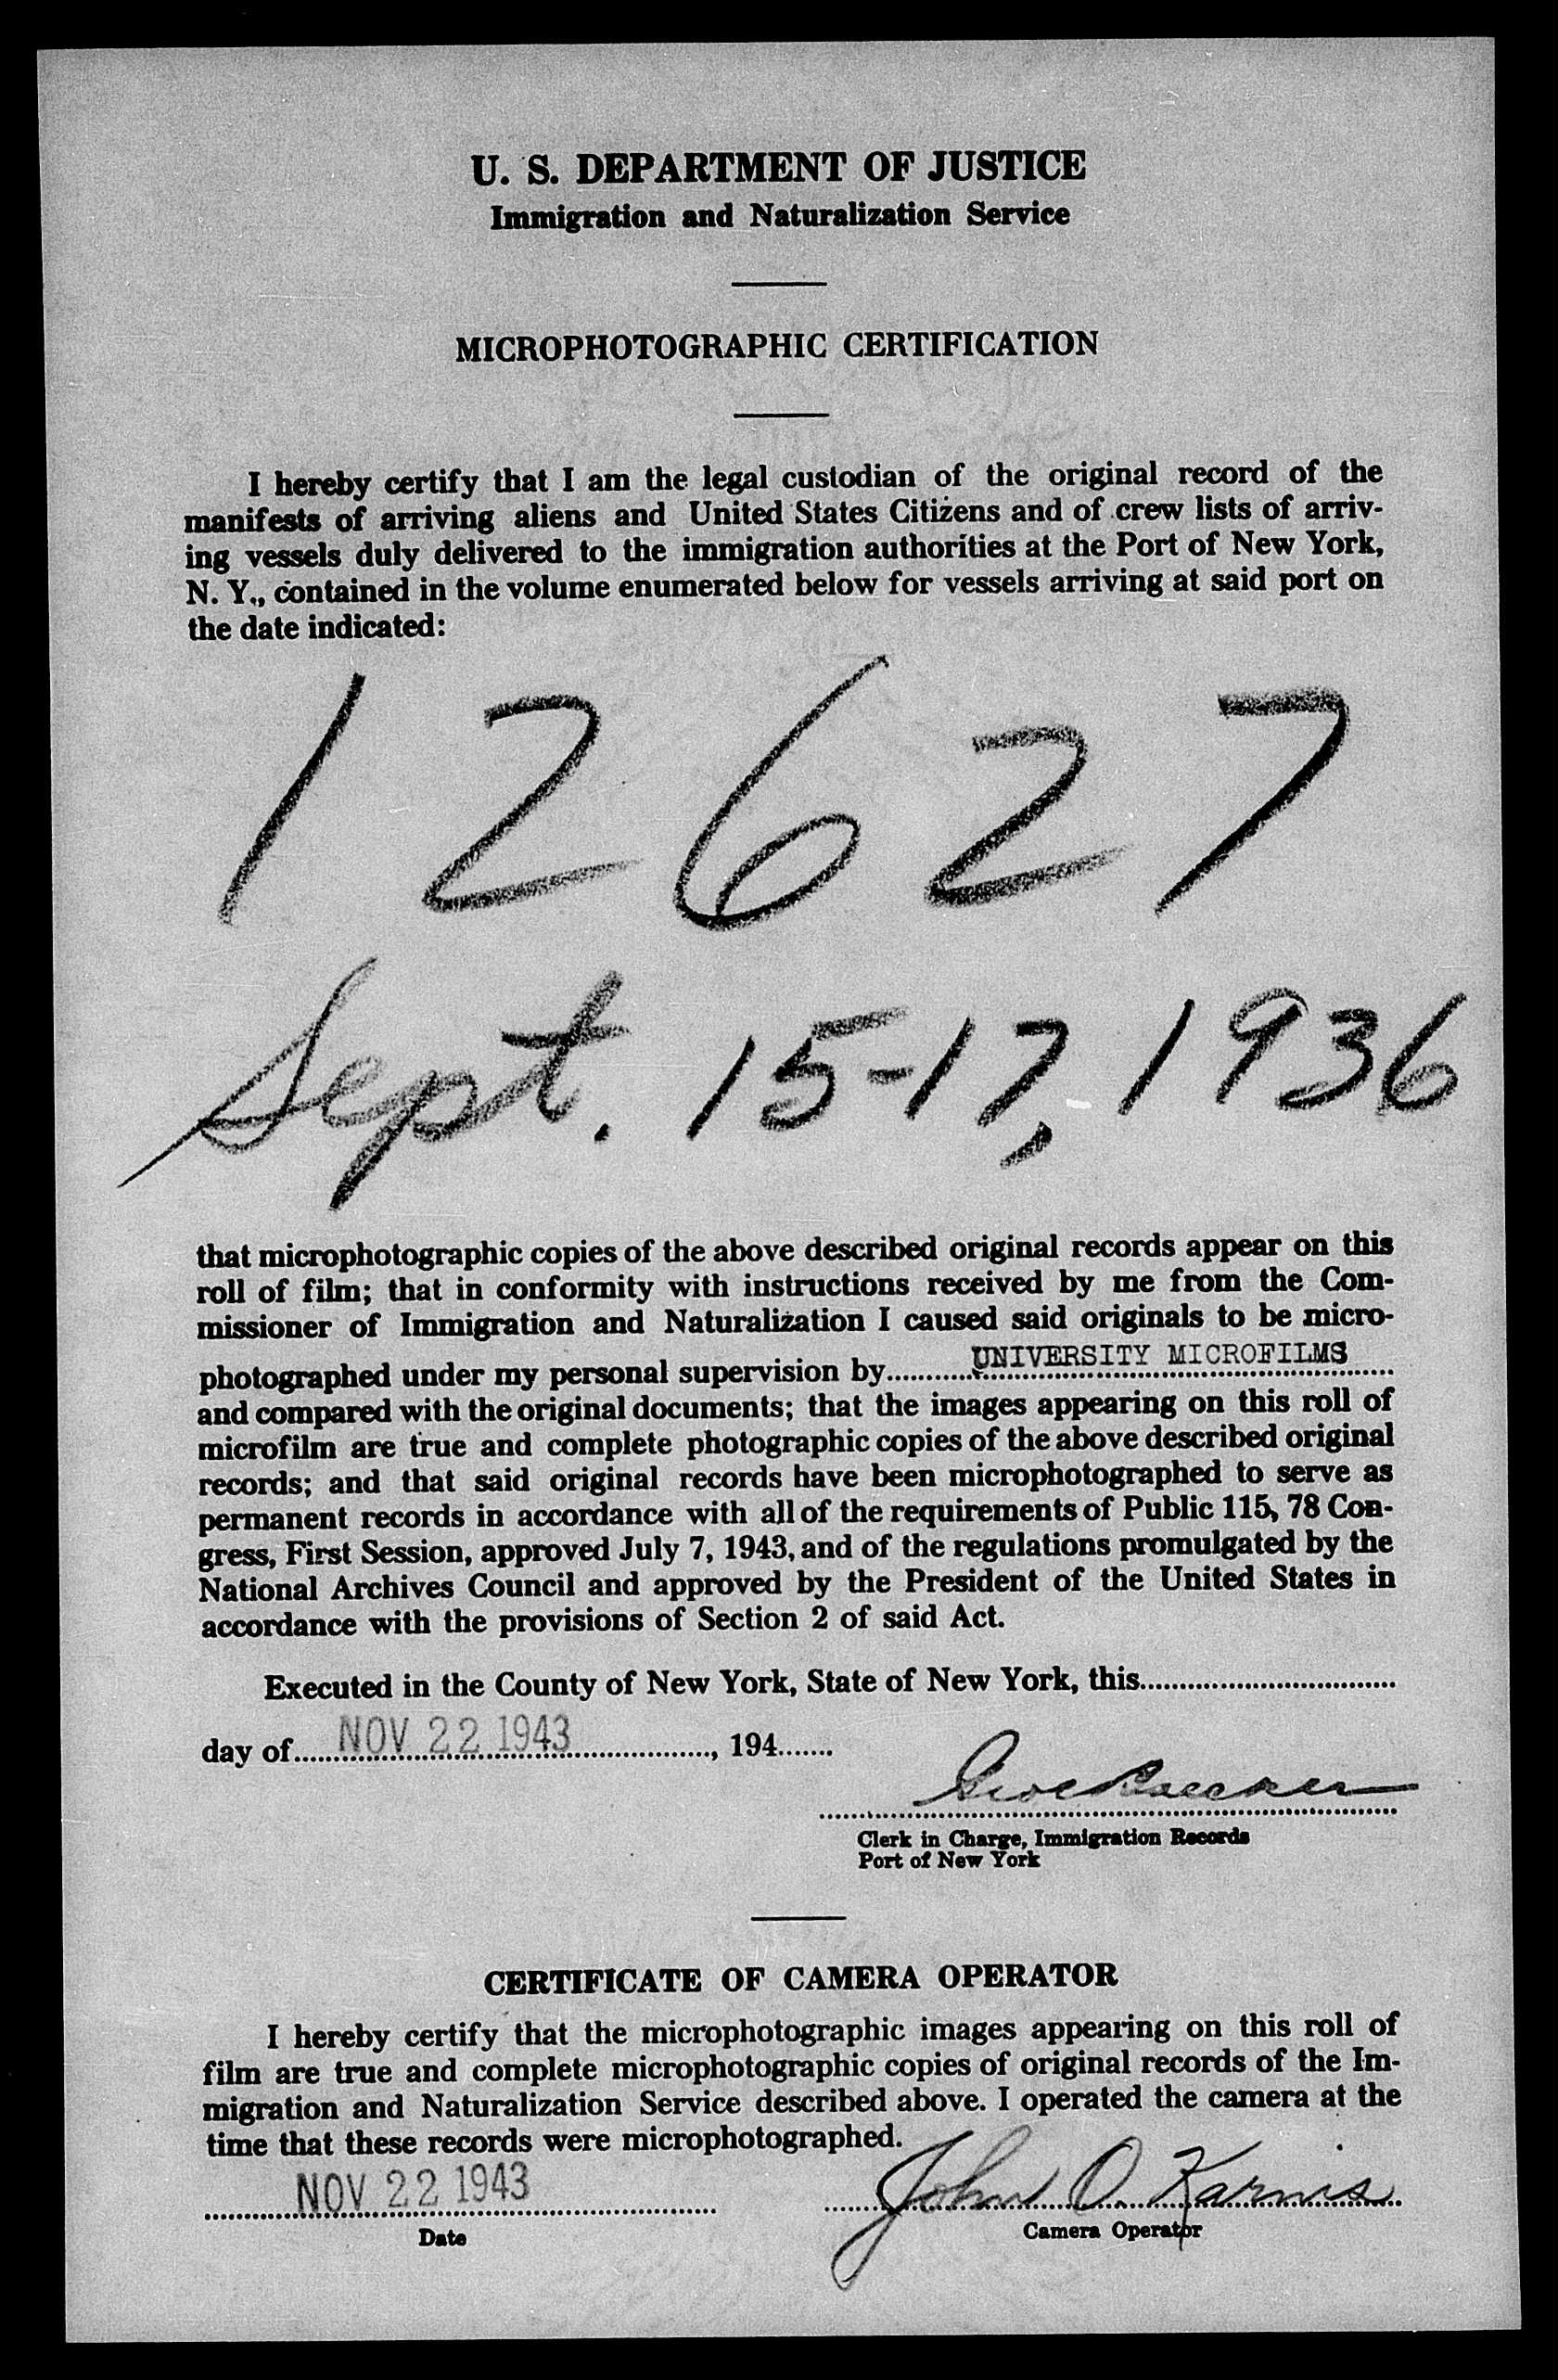 U. S. DEPARTMENT OF JUSTICE
Immigration and Naturalization Service
MICROPHOTOGRAPHIC CERTIFICATION
I hereby certify that I am the legal custodian of the original record of the
manifests of arriving aliens and United States Citizens and of crew lists of arriv-
ing vessels duly delivered to the immigration authorities at the Port of New York,
N. Y., contained in the volume enumerated below for vessels arriving at said port on
the date indicated:
12627
Sept. 15-17, 1936
that microphotographic copies of the above described original records appear on this
roll of film; that in conformity with instructions received by me from the Com-
missioner of Immigration and Naturalization I caused said originals to be micro-
photographed under my personal supervision by UNIVERSITY MICROFILMS
and compared with the original documents; that the images appearing on this roll of
microfilm are true and complete photographic copies of the above described original
records; and that said original records have been microphotographed to serve as
permanent records in accordance with all of the requirements of Public 115, 78 Con-
gress, First Session, approved July 7, 1943, and of the regulations promulgated by the
National Archives Council and approved by the President of the United States in
accordance with the provisions of Section 2 of said Act.
Executed in the County of New York, State of New York, this
day of NOV 22 1943, 194
Clerk in Charge, Immigration Records
Port of New York
CERTIFICATE OF CAMERA OPERATOR
I hereby certify that the microphotographic images appearing on this roll of
film are true and complete microphotographic copies of original records of the Im-
migration and Naturalization Service described above. I operated the camera at the
time that these records were microphotographed.
NOV 22 1943 John O. Karnis
Date Camera Operator